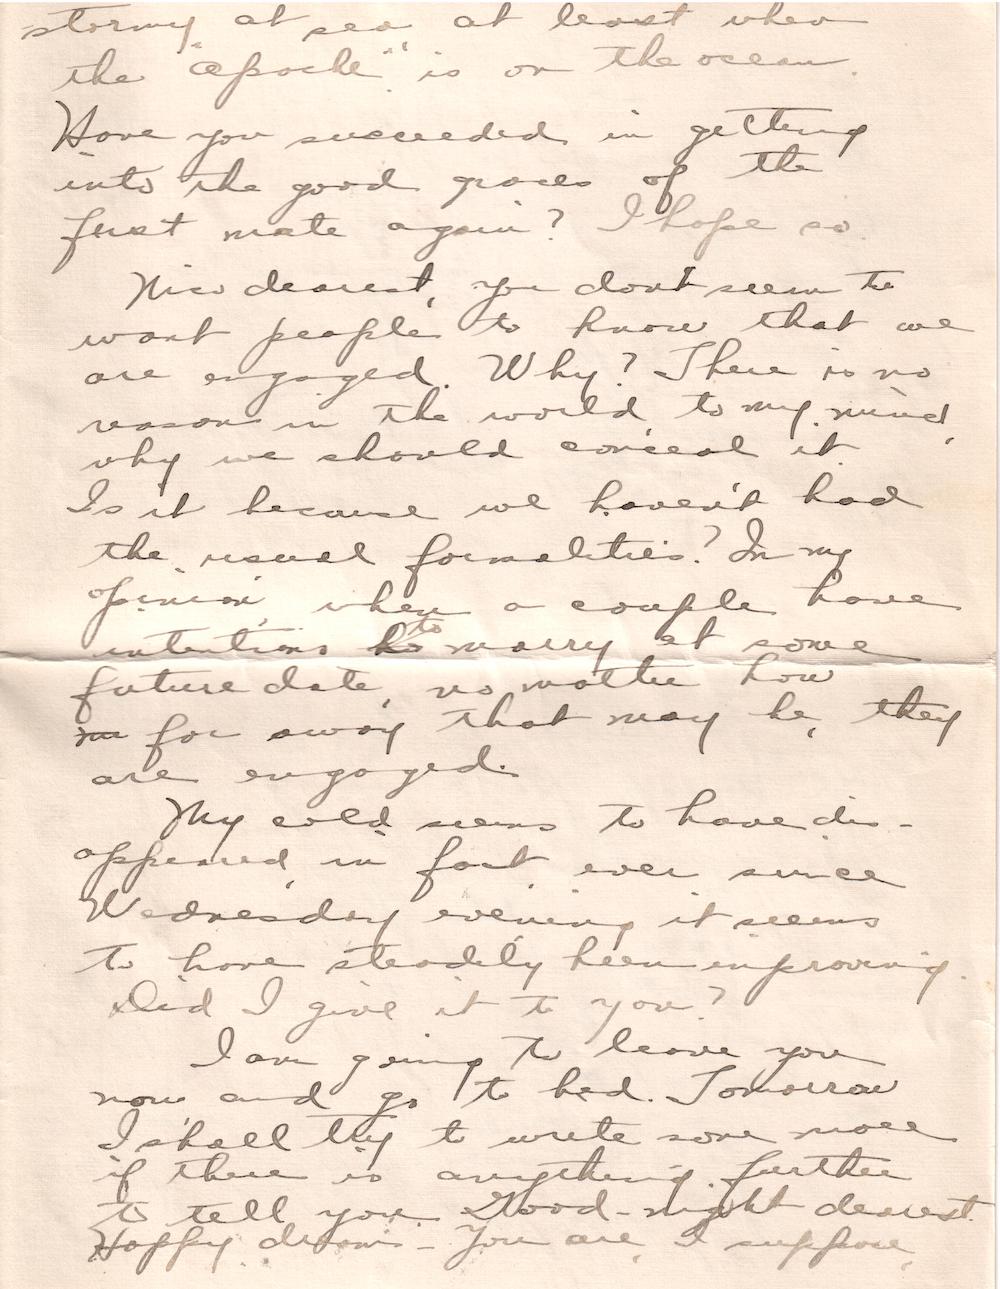 stormy at sea, at least when
the "Apache" is on the ocean.
Have you succeeded in getting
into the good graces of the
first mate again? I hope so.
Nico dearest, you don't seem to
want people to know that we
are engaged. Why? There is no
reason in the world, to my mind,
why we should conceal it.
Is it because we haven't had
the usual formalities? In my
opinion when a couple have
intentions to marry at some
future date, no matter how
far away that may be, they
are engaged.
My cold seems to have dis-
appeared in fact ever since
Wednesday evening it seems
to have steadily been improving.
Did I give it to you?
I am going to leave you
now and go to bed. Tomorrow
I shall try to write some more
if there is anything further
to tell you. Good-night dearest.
Happy dreams - You are, I suppose,